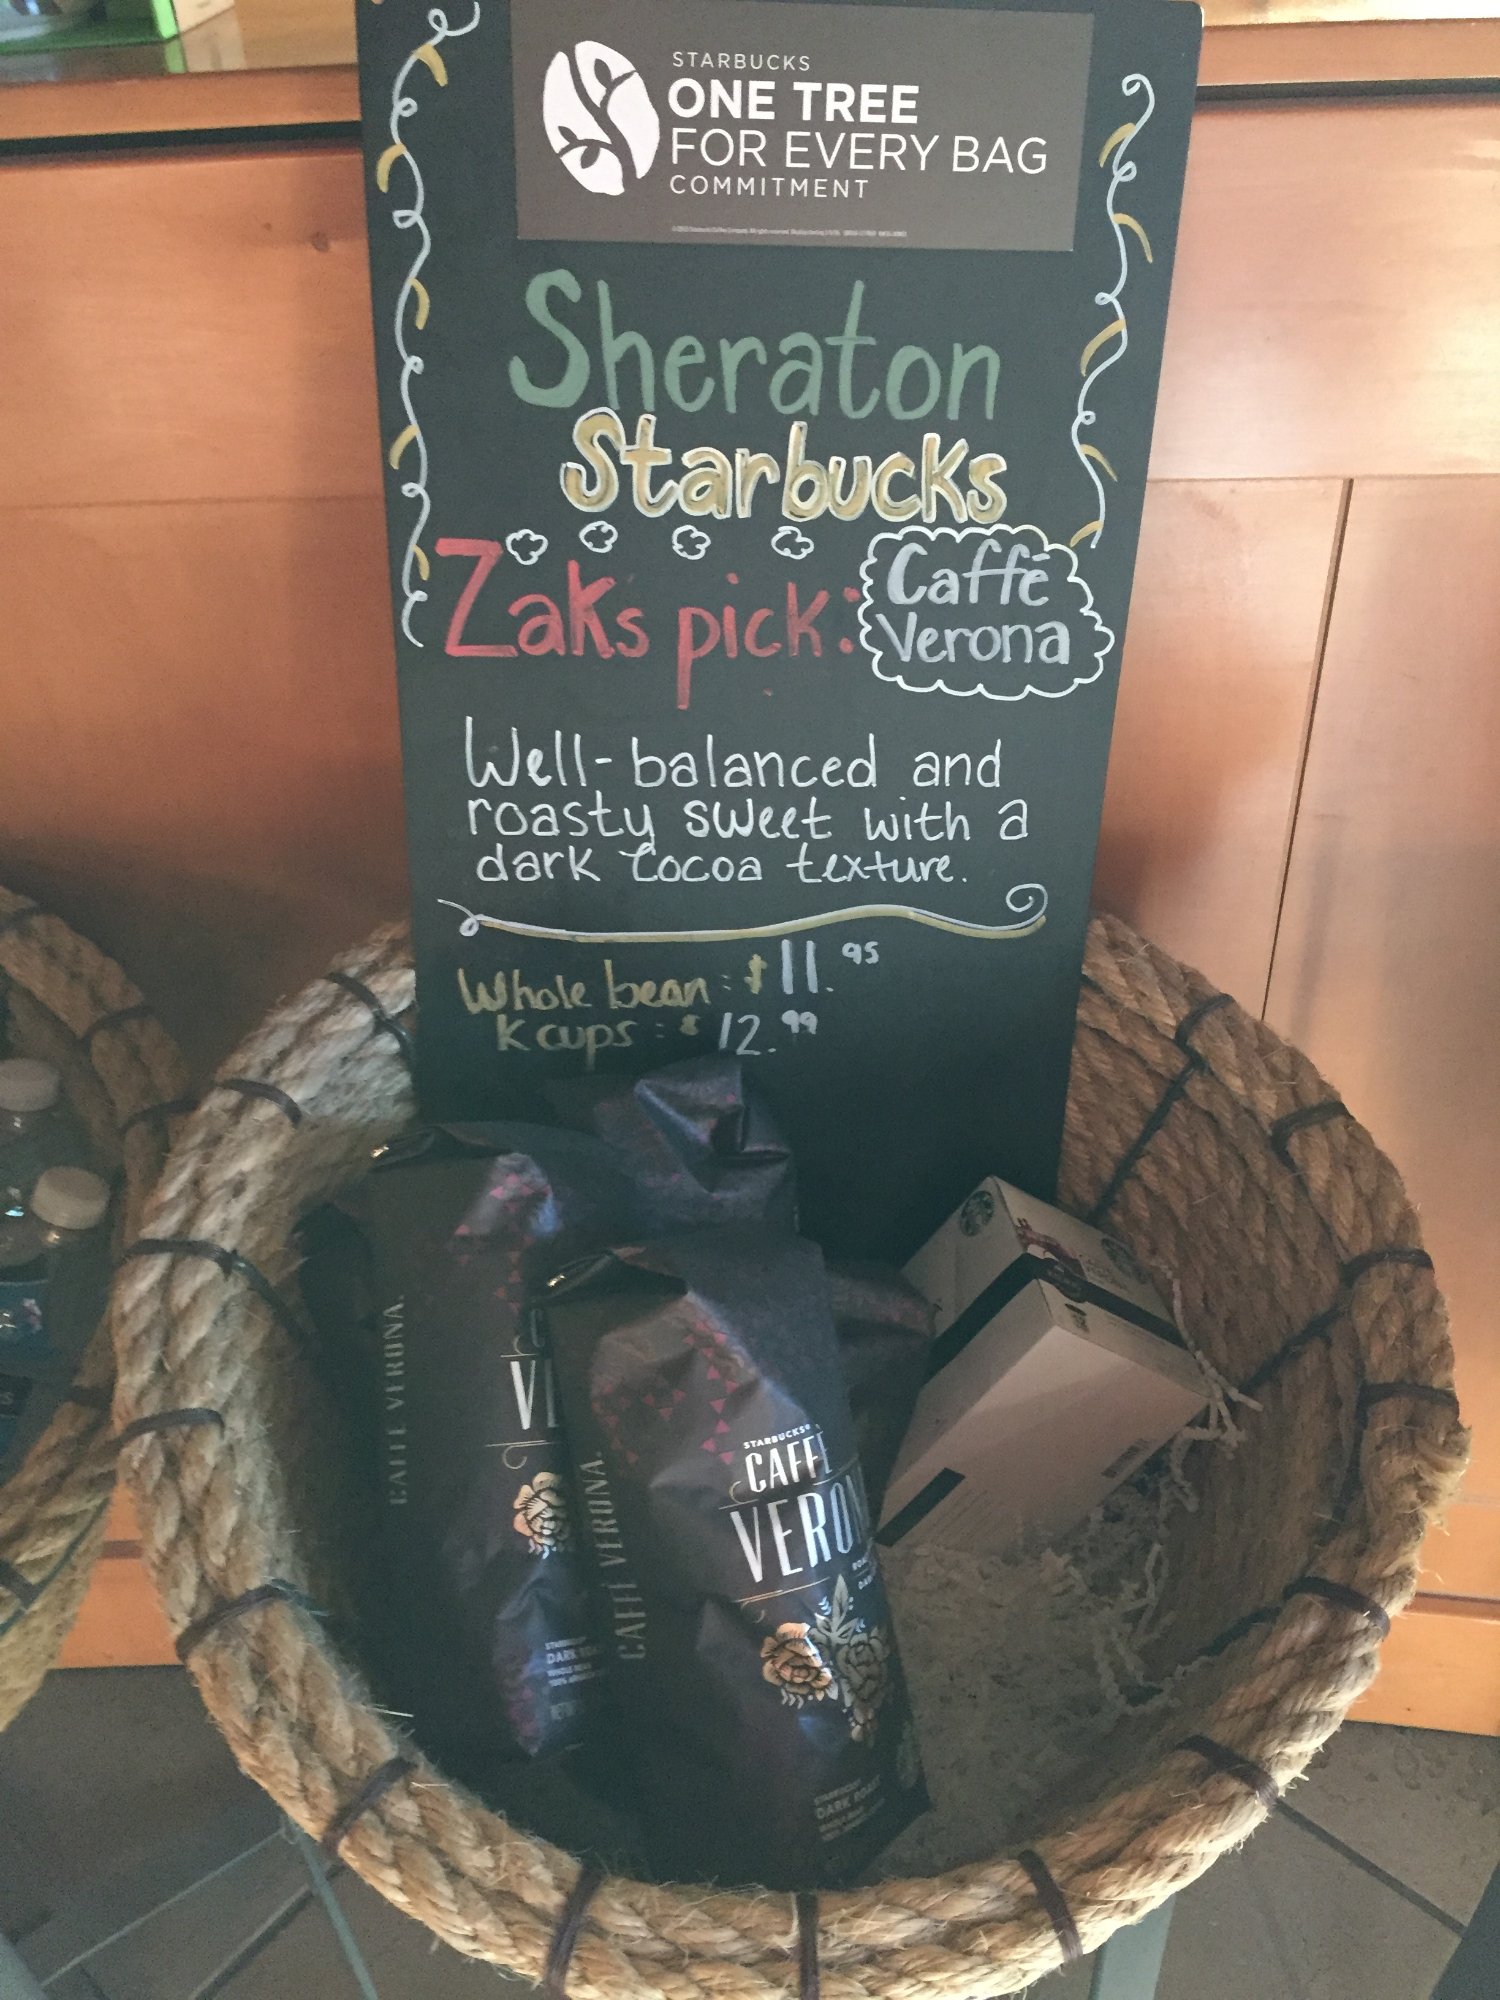 STARBUCKS
ONE TREE
FOR EVERY BAG
COMMITMENT
Sheraton
Starbucks
Zaks pick:
Caffé
Verona
Well-balanced and
roasty sweet with a
dark cocoa texture.
Whole bean: $11.95
K cups: $12.99
CAFFÈ VERONA.
CAFFÈ VERONA.
STARBUCKS®
CAFFÈ
VERON
STARBUCKS®
DARK ROAST
DARK